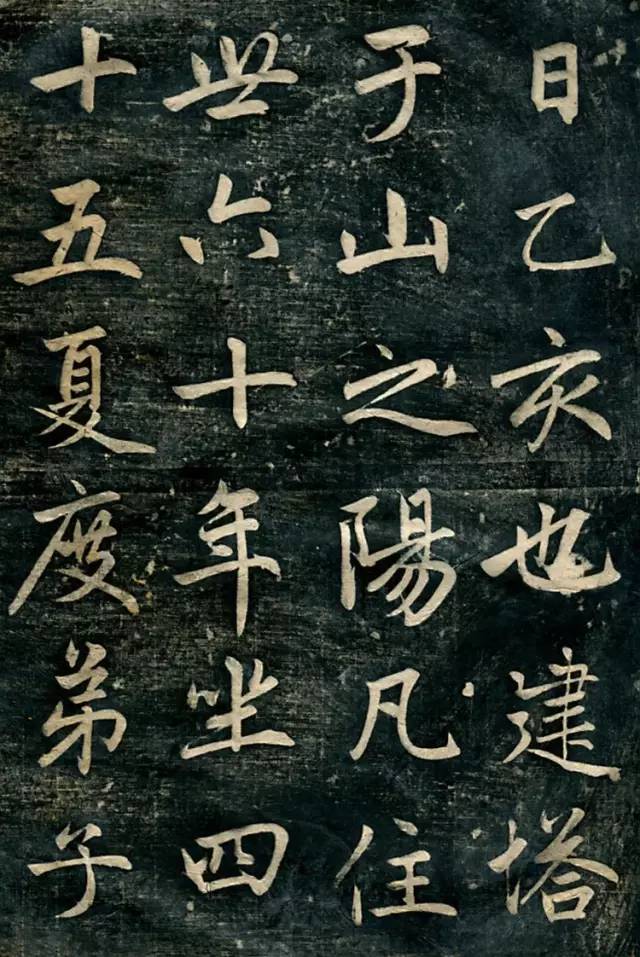 日乙亥也建塔
于山之陽凡住
世六十年坐四
十五夏度弟子